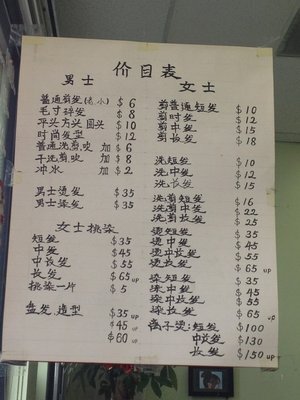 价目表
男士
普通剪发(老小) $6
毛寸碎发 $8
平头方头圆头 $10
时尚发型 $12
普通洗剪吹 加 $6
干洗剪吹 加 $8
冲水 加 $2
男士烫发 $35
男士染发 $35
女士挑染
短发 $35
中发 $45
中长发 $55
长发 $65up
挑染一片 $5
盘发.造型 $35up
$45up
$60up
女士
剪普通短发 $10
剪时发 $12
剪中发 $15
剪长发 $18
洗短发 $10
洗中发 $12
洗长发 $15
洗剪短发 $16
洗剪中发 $22
洗剪长发 $25
烫短发 $35
烫中发 $45
烫中长发 $55
烫长发 $65up
染短发 $35
染中发 $45
染中长发 $55
染长发 $65up
离子烫:短发 $100
中长发 $130
长发 $150up